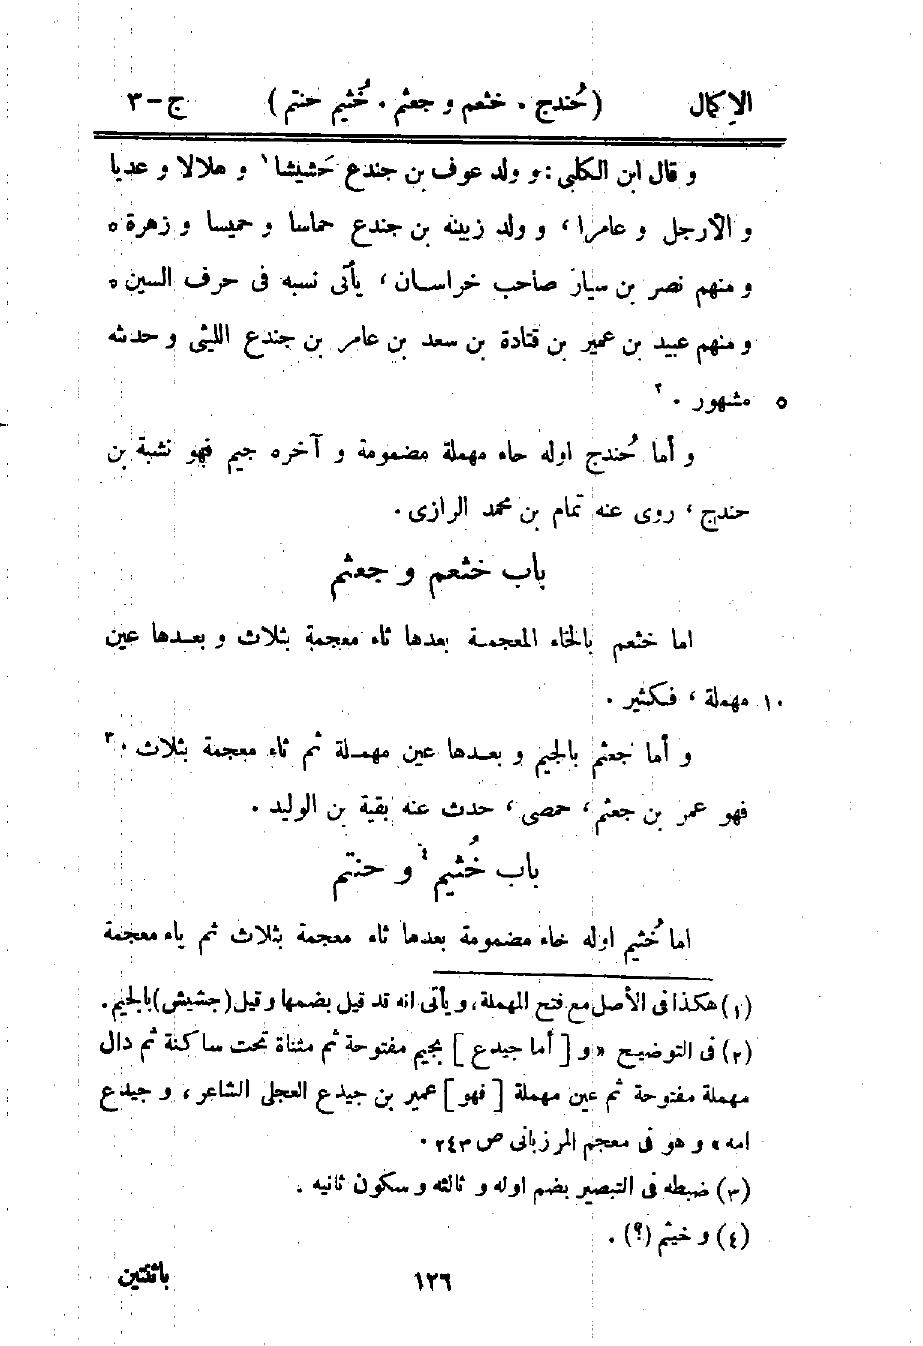 الإكمال (حُندج . خثعم و جعثم . خُثيم حنتم) ج-٣
و قال ابن الكلبي : و ولد عوف بن جندع حَشيشا¹ و هلالا و عديا
و الأرجل و عامرا ، و ولد زبينه بن جندع حماسا و حميسا و زهرة ه
و منهم نصر بن سيار صاحب خراسان ، يأتى نسبه فى حرف السين ه
و منهم عبيد بن عمير بن قتادة بن سعد بن عامر بن جندع الليثى و حدثه
٥ مشهور . ²
و أما حُندج اوله حاء مهملة مضمومة و آخره جيم فهو نشبة بن
حندج ، روى عنه تمام بن محمد الرازى .
باب خثعم و جعثم
اما خثعم بالخاء المعجمة بعدها ثاء معجمة بثلاث و بعدها عين
١٠ مهملة ، فكثير .
و أما جعثم بالجيم و بعدها عين مهملة ثم ثاء معجمة بثلاث . ³
فهو عمر بن جعثم ، حمصى ، حدث عنه بقية بن الوليد .
باب خُثيم⁴ و حنتم
اما خُثيم اوله خاء مضمومة بعدها ثاء معجمة بثلاث ثم ياء معجمة
(١) هكذا فى الأصل مع فتح المهملة ، و يأتى انه قد قيل بضمها و قيل (جشيش) بالجيم .
(٢) فى التوضيح « و [ أما جيدع ] بجيم مفتوحة ثم مثناة تحت ساكنة ثم دال
مهملة مفتوحة ثم عين مهملة [ فهو ] عمير بن جيدع العجلى الشاعر ، و جيدع
امه » و هو فى معجم المرزبانى ص ٢٤٣ .
(٣) ضبطه فى التبصير بضم اوله و ثالثه و سكون ثانيه .
(٤) و خيثم (؟) .
١٢٦ باثنتين